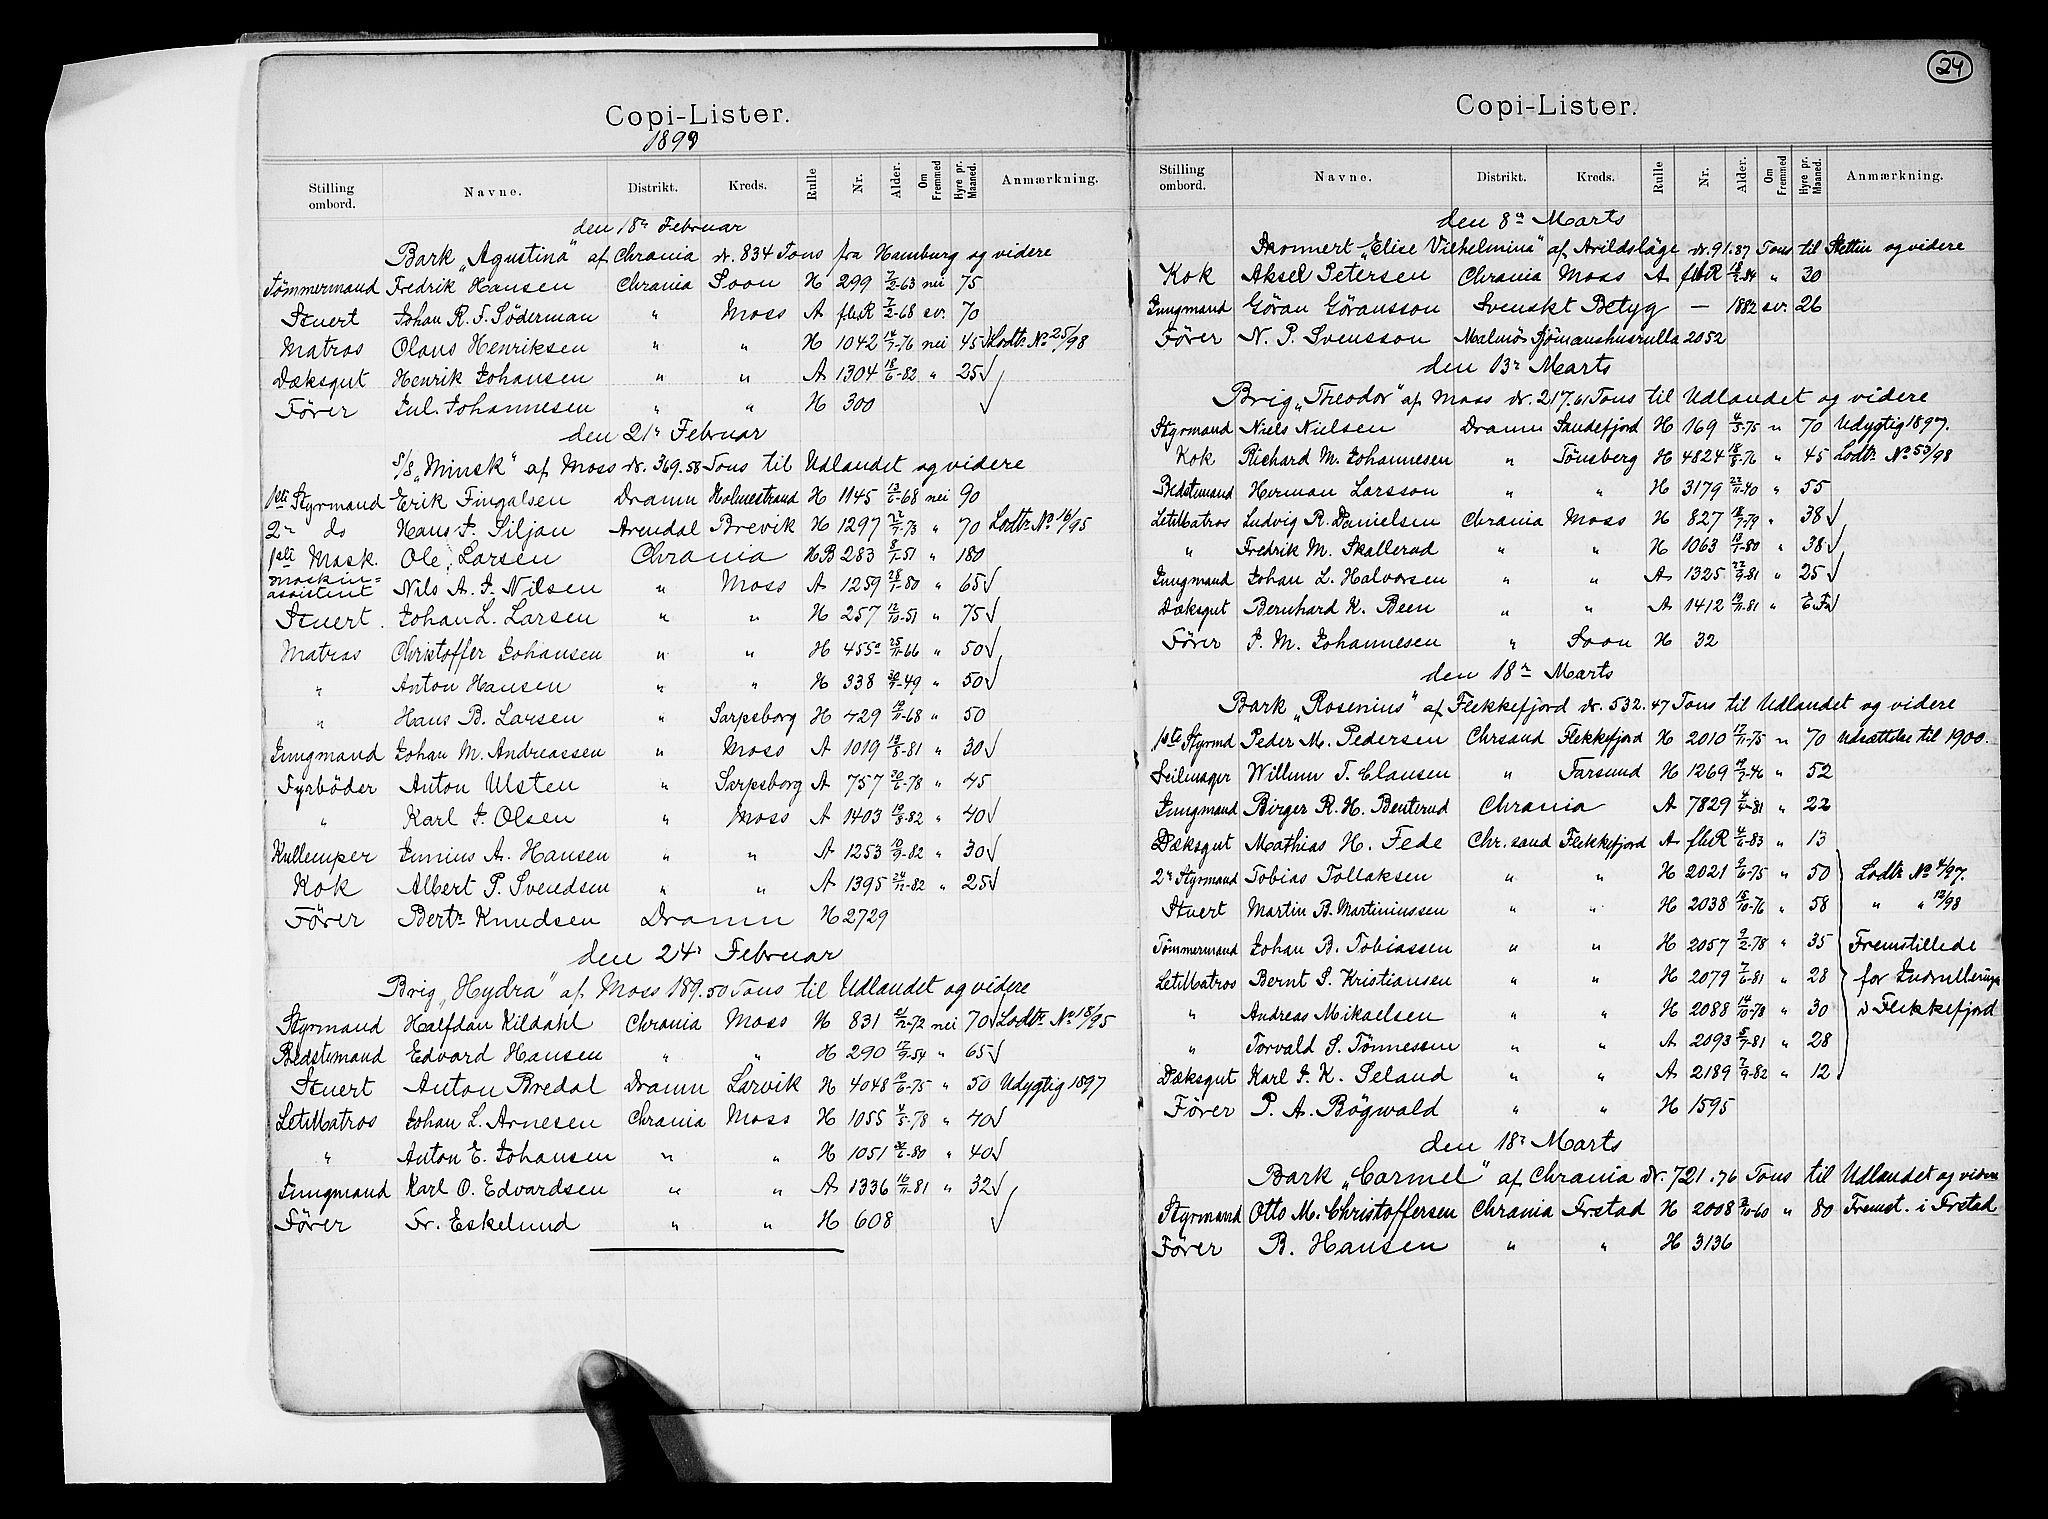 Copi-Lister.
1899
Stilling ombord. Navne. Distrikt. Kreds. Rulle Nr. Alder. Om Fremmed Hyre pr. Maaned. Anmærkning.
den 18de Februar
Bark „Agustina" af Chrania dr. 834 Tons fra Hamburg og videre
Tömmermand Fredrik Hansen Chrania Soon H 299 7/2-63 nei 75
Stuert Johan R. S. Söderman " Moss A fbR 7/2-68 sv. 70
Matros Olaus Henriksen " " H 1042 14/7-76 nei 45 √ Lodtr. No 25/98
Dæksgut Henrik Johansen " " A 1304 18/6-82 " 25 √
Förer Jul. Johannesen " " H 300 √
den 21de Februar
S/S „Minsk" af Moss dr. 369.58 Tons til Udlandet og videre
1ste Styrmand Erik Fingalsen Dramn Holmestrand H 1145 13/6-68 nei 90
2n do Hans J. Siljan Arendal Brevik H 1297 22/7-73 " 70 Lodtr No 16/95
1ste Mask. Ole Larsen Chrania HB 283 8/1-51 " 180
maskin=
assistent Nils A. J. Nilsen " Moss A 1259 28/1-80 " 65 √
Stuert Johan L. Larsen " " H 257 12/10-51 " 75 √
Matros Christoffer Johansen " " H 455a 25/11-66 " 50 √
" Anton Hansen " " H 338 -49 " 50 √
" Hans B. Larsen " Sarpsborg H 429 19/11-68 " 50
Jungmand Johan M. Andreassen " Moss A 1019 19/8-81 " 30 √
Fyrböder Anton Ulsten " Sarpsborg A 757 30/6-78 " 45
" Karl J. Olsen " Moss A 1403 19/3-82 " 40 √
Kullemper Junius A. Hansen " " A 1253 10/9-82 " 30 √
Kok Albert P. Svendsen " " A 1395 24/12-82 " 25 √
Förer Bertr. Knudsen Dramn H 2729
den 24de Februar
Brig „Hydra" af Moss 189.50 Tons til Udlandet og videre
Styrmand Halfdan Kildahl Chrania Moss H 831 21/12-72 nei 70 √ Lodtr. No 18/95
Bedstemand Edvard Hansen " " H 290 17/9-54 " 65 √
Stuert Anton Bredal Dramn Larvik H 4048 10/6-75 " 50 Udygtig 1897
LetMatros Johan L. Arnesen Chrania Moss H 1055 4/5-78 " 40 √
" Anton E. Johansen " " H 1051 -80 " 40 √
Jungmand Karl O. Edvardsen " " A 1336 16/11-81 " 32 √
Förer Fr. Eskelund " " H 608 √
24
Copi-Lister.
Stilling ombord. Navne. Distrikt. Kreds. Rulle Nr. Alder. Om Fremmed Hyre pr. Maaned. Anmærkning.
den 8de Marts
Skonnert „Elise Vilhelmina" af Arildsläge dr. 91.87 Tons til Stettin og videre
Kok Aksel Petersen Chrania Moss A fbR -84 " 30
Jungmand Göran Göransson Svenskt Betyg — 1882 sv. 26
Förer N. P. Svensson Malmö Sjömanshusrulla 2052
den 13de Marts
Brig „Theodor" af Moss dr. 217.61 Tons til Udlandet og videre
Styrmand Niels Nielsen Dramn Sandefjord H 169 4/3-75 " 70 Udygtig 1897.
Kok Richard M. Johannesen " Tönsberg H 4824 18/8-76 " 45 Lodtr. No 53/98
Bedstemand Herman Larsson " " H 3179 22/11-40 " 55
LetMatros Ludvig R. Danielsen Chrania Moss H 827 18/7-79 " 38 √
" Fredrik M. Skallerud " " H 1063 13/1-80 " 38 √
Jungmand Johan L. Halvorsen " " A 1325 22/9-81 " 25 √
Dæksgut Bernhard K. Been " " A 1412 19/11-81 "
Förer J. M. Johannesen " Soon H 32
den 18de Marts
Bark „Rosenius" af Flekkefjord dr. 532.47 Tons til Udlandet og videre
1ste Styrmd Peder M. Pedersen Chrsand Flekkefjord H 2010 17/11-75 " 70 Udsættelse til 1900.
Seilmager Willum T. Clausen " Farsund H 1269 19/7-46 " 52
Jungmand Birger R. H. Benterud Chrania A 7829 4/6-81 " 22
Dæksgut Mathias H. Fede Chr.sand Flekkefjord A fbR 4/6-83 " 13
2n Styrmand Tobias Tollaksen " " H 2021 9/6-75 " 50 Lodtr No 4/97.
Stuert Martin B. Martiniussen " " H 2038 15/10-76 " 58 " " 12/98
Tömmermand Johan B. Tobiassen " " H 2057 9/2-78 " 35 Fremstillede
LetMatros Bernt S. Kristiansen " " H 2079 7/6-81 " 28 for Indrullering
" Andreas Mikaelsen " " H 2088 14/10-78 " 30 i Flekkefjord
" Torvald S. Tönnessen " " A 2093 5/7-81 " 28
Dæksgut Karl J. K. Seland " " A 2189 7/9-82 " 12
Förer P. A. Bögwald " " H 1595
den 18de Marts
Bark „Carmel" af Chrania dr. 721.76 Tons til Udlandet og videre
Styrmand Otto M. Christoffersen Chrania Frstad H 2008 -60 " 80 Fremst. i Frstad
Förer B. Hansen " " H 3136